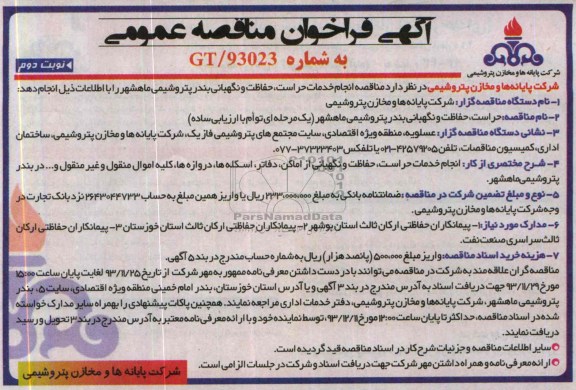 آگهی فراخوان مناقصه عمومی
به شماره GT/93023
نوبت دوم
شرکت پایانه ها و مخازن پتروشیمی
شرکت پایانه‌ها و مخازن پتروشیمی در نظر دارد مناقصه انجام خدمات حراست، حفاظت و نگهبانی بندر پتروشیمی ماهشهر را با اطلاعات ذیل انجام دهد:
۱- نام دستگاه مناقصه گزار: شرکت پایانه‌ها و مخازن پتروشیمی
۲- نام مناقصه: حراست، حفاظت و نگهبانی بندر پتروشیمی ماهشهر (یک مرحله ای توأم با ارزیابی ساده)
۳- نشانی دستگاه مناقصه گزار: عسلویه، منطقه ویژه اقتصادی، سایت مجتمع های پتروشیمی فاز یک، شرکت پایانه‌ها و مخازن پتروشیمی، ساختمان
اداری، کمیسیون مناقصات، تلفن ۴۲۵۷۹۲۰۵-۰۲۱ یا تلفکس ۳۷۳۲۳۴۰۳-۰۷۷
۴- شرح مختصری از کار: انجام خدمات حراست، حفاظت و نگهبانی از اماکن، دفاتر، اسکله ها، دروازه ها، کلیه اموال منقول و غیر منقول و... در بندر
پتروشیمی ماهشهر.
۵- نوع و مبلغ تضمین شرکت در مناقصه: ضمانتنامه بانکی به مبلغ ۲۳۳۰۰۰۰۰۰۰ ریال یا واریز همین مبلغ به حساب ۲۶۴۳۰۴۴۷۳۳ نزد بانک تجارت در
وجه شرکت پایانه‌ها و مخازن پتروشیمی.
۶- مدارک مورد نیاز: ۱- پیمانکاران حفاظتی ارکان ثالث استان بوشهر ۲- پیمانکاران حفاظتی ارکان ثالث استان خوزستان ۳- پیمانکاران حفاظتی ارکان
ثالث سراسری صنعت نفت.
۷- هزینه خرید اسناد مناقصه: واریز مبلغ ۵۰۰۰۰۰ (پانصد هزار) ریال به شماره حساب مندرج در بند ۵ آگهی.
مناقصه گران علاقه مند به شرکت در مناقصه می توانند با در دست داشتن معرفی نامه ممهور به مهر شرکت از تاریخ ۹۳/۱۱/۲۵ لغایت پایان ساعت ۱۵:۰۰
مورخ ۹۳/۱۱/۲۹ جهت دریافت اسناد به آدرس مندرج در بند ۳ آگهی و یا آدرس استان خوزستان، بندر امام خمینی منطقه ویژه اقتصادی، سایت ۵، بندر
پتروشیمی ماهشهر، شرکت پایانه ها و مخازن پتروشیمی، دفتر خدمات اداری مراجعه نمایند. همچنین پاکات پیشنهادی را بهمراه سایر مدارک خواسته
شده در اسناد مناقصه، حداکثر تا پایان ساعت ۱۲:۰۰ مورخ ۹۳/۱۲/۱۱، توسط نماینده خود و با ارائه معرفی نامه معتبر به آدرس مندرج در بند ۳ تحویل و رسید
دریافت نمایند.
● سایر اطلاعات مناقصه و جزئیات شرح کار در اسناد مناقصه قید گردیده است.
● ارائه معرفی نامه و همراه داشتن مهر شرکت جهت دریافت اسناد و شرکت در جلسات الزامی است.
شرکت پایانه ها و مخازن پتروشیمی
ParsNamadData